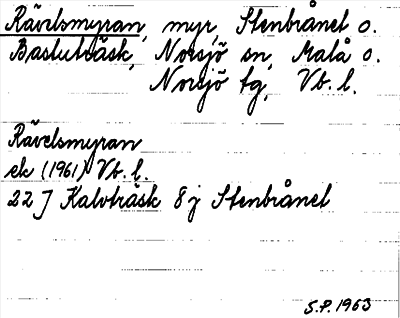 Rävelsmyran, myr, Stenbrånet o.
Bastuträsk, Norsjö sn, Malå o.
Norsjö tg, Vb. l.
Rävelsmyran
ek (1961) Vb. l.
22 J Kalvträsk 8 j Stenbrånet
S.P. 1963